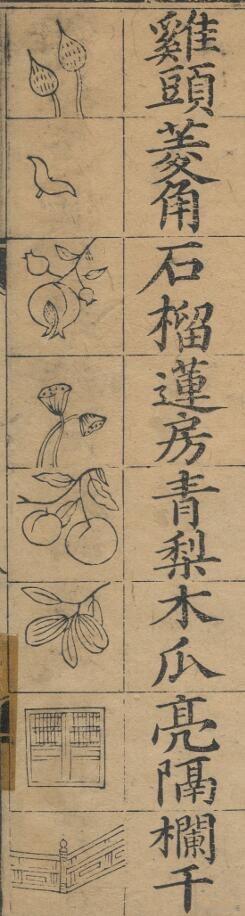 雞頭
菱角
石榴
蓮房
青梨
木瓜
亮隔
欄干